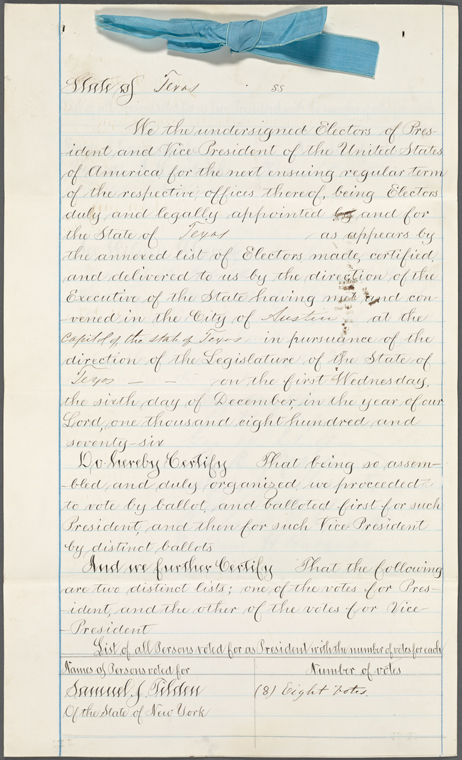 State of Texas ss
We the undersigned Electors of Pres-
ident and Vice President of the United States
of America for the next ensuing regular term
of the respective offices thereof, being Electors
duly and legally appointed by and for
the State of Texas as appears by
the annexed list of Electors made, certified,
and delivered to us by the direction of the
Executive of the State having met and con-
vened in the City of Austin at the
Capitol of the State of Texas in pursuance of the
direction of the Legislature of the State of
Texas — - on the first Wednesday,
the sixth day of December, in the year of our
Lord, one thousand eight hundred and
seventy-six
Do hereby Certify That being so assem-
bled and duly organized, we proceeded
to vote by ballot, and balloted first for such
President, and then for such Vice President
by distinct ballots
And we further Certify That the following
are two distinct lists; one of the votes for Pres-
ident, and the other of the votes for Vice
-President
List of all Persons voted for as President with the number of votes for each
Names of Persons voted for Number of votes
Samuel J Tilden (8) Eight Votes.
Of the State of New York